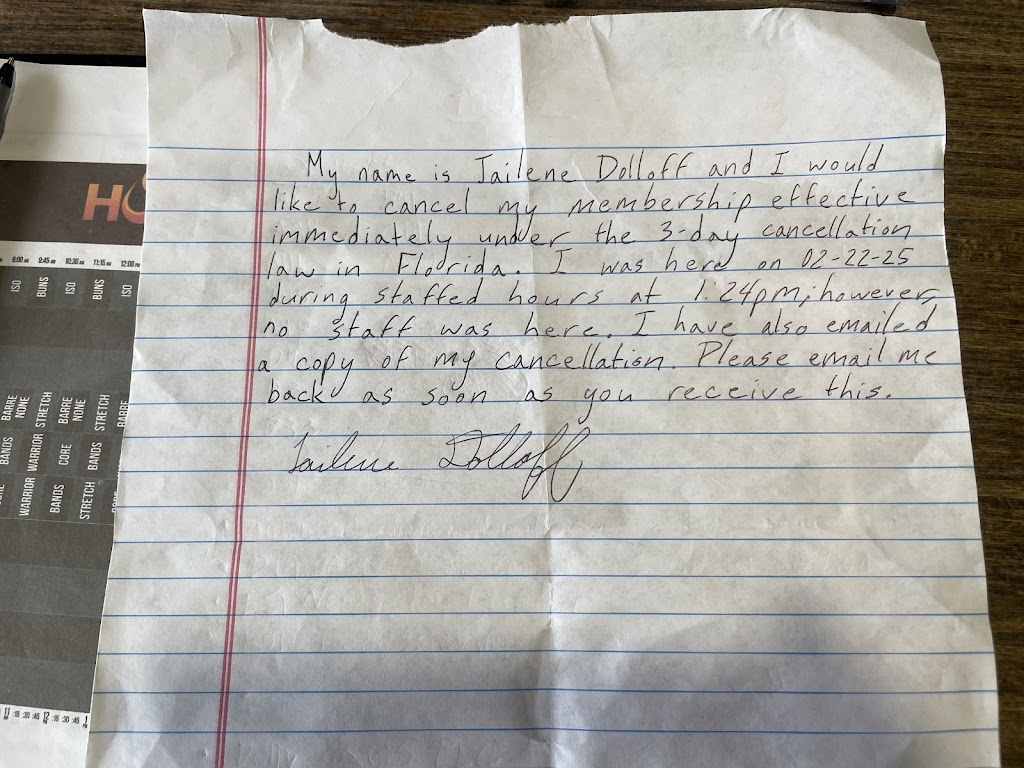 My name is Jailene Dolloff and I would
like to cancel my membership effective
immediately under the 3-day cancellation
law in Florida. I was here on 02-22-25
during staffed hours at 1:24pm; however,
no staff was here. I have also emailed
a copy of my cancellation. Please email me
back as soon as you receive this.
Jailene Dolloff
HO
9:00 AM 9:45 AM 10:30 AM 11:15 AM 12:00 PM
ISO BUNS ISO BUNS ISO
BARRE NONE STRETCH BARRE NONE STRETCH BARRE
BANDS WARRIOR CORE BANDS
WARRIOR BANDS STRETCH
11 AM :15 :30 :45 12 PM :15 :30 :45 1 PM